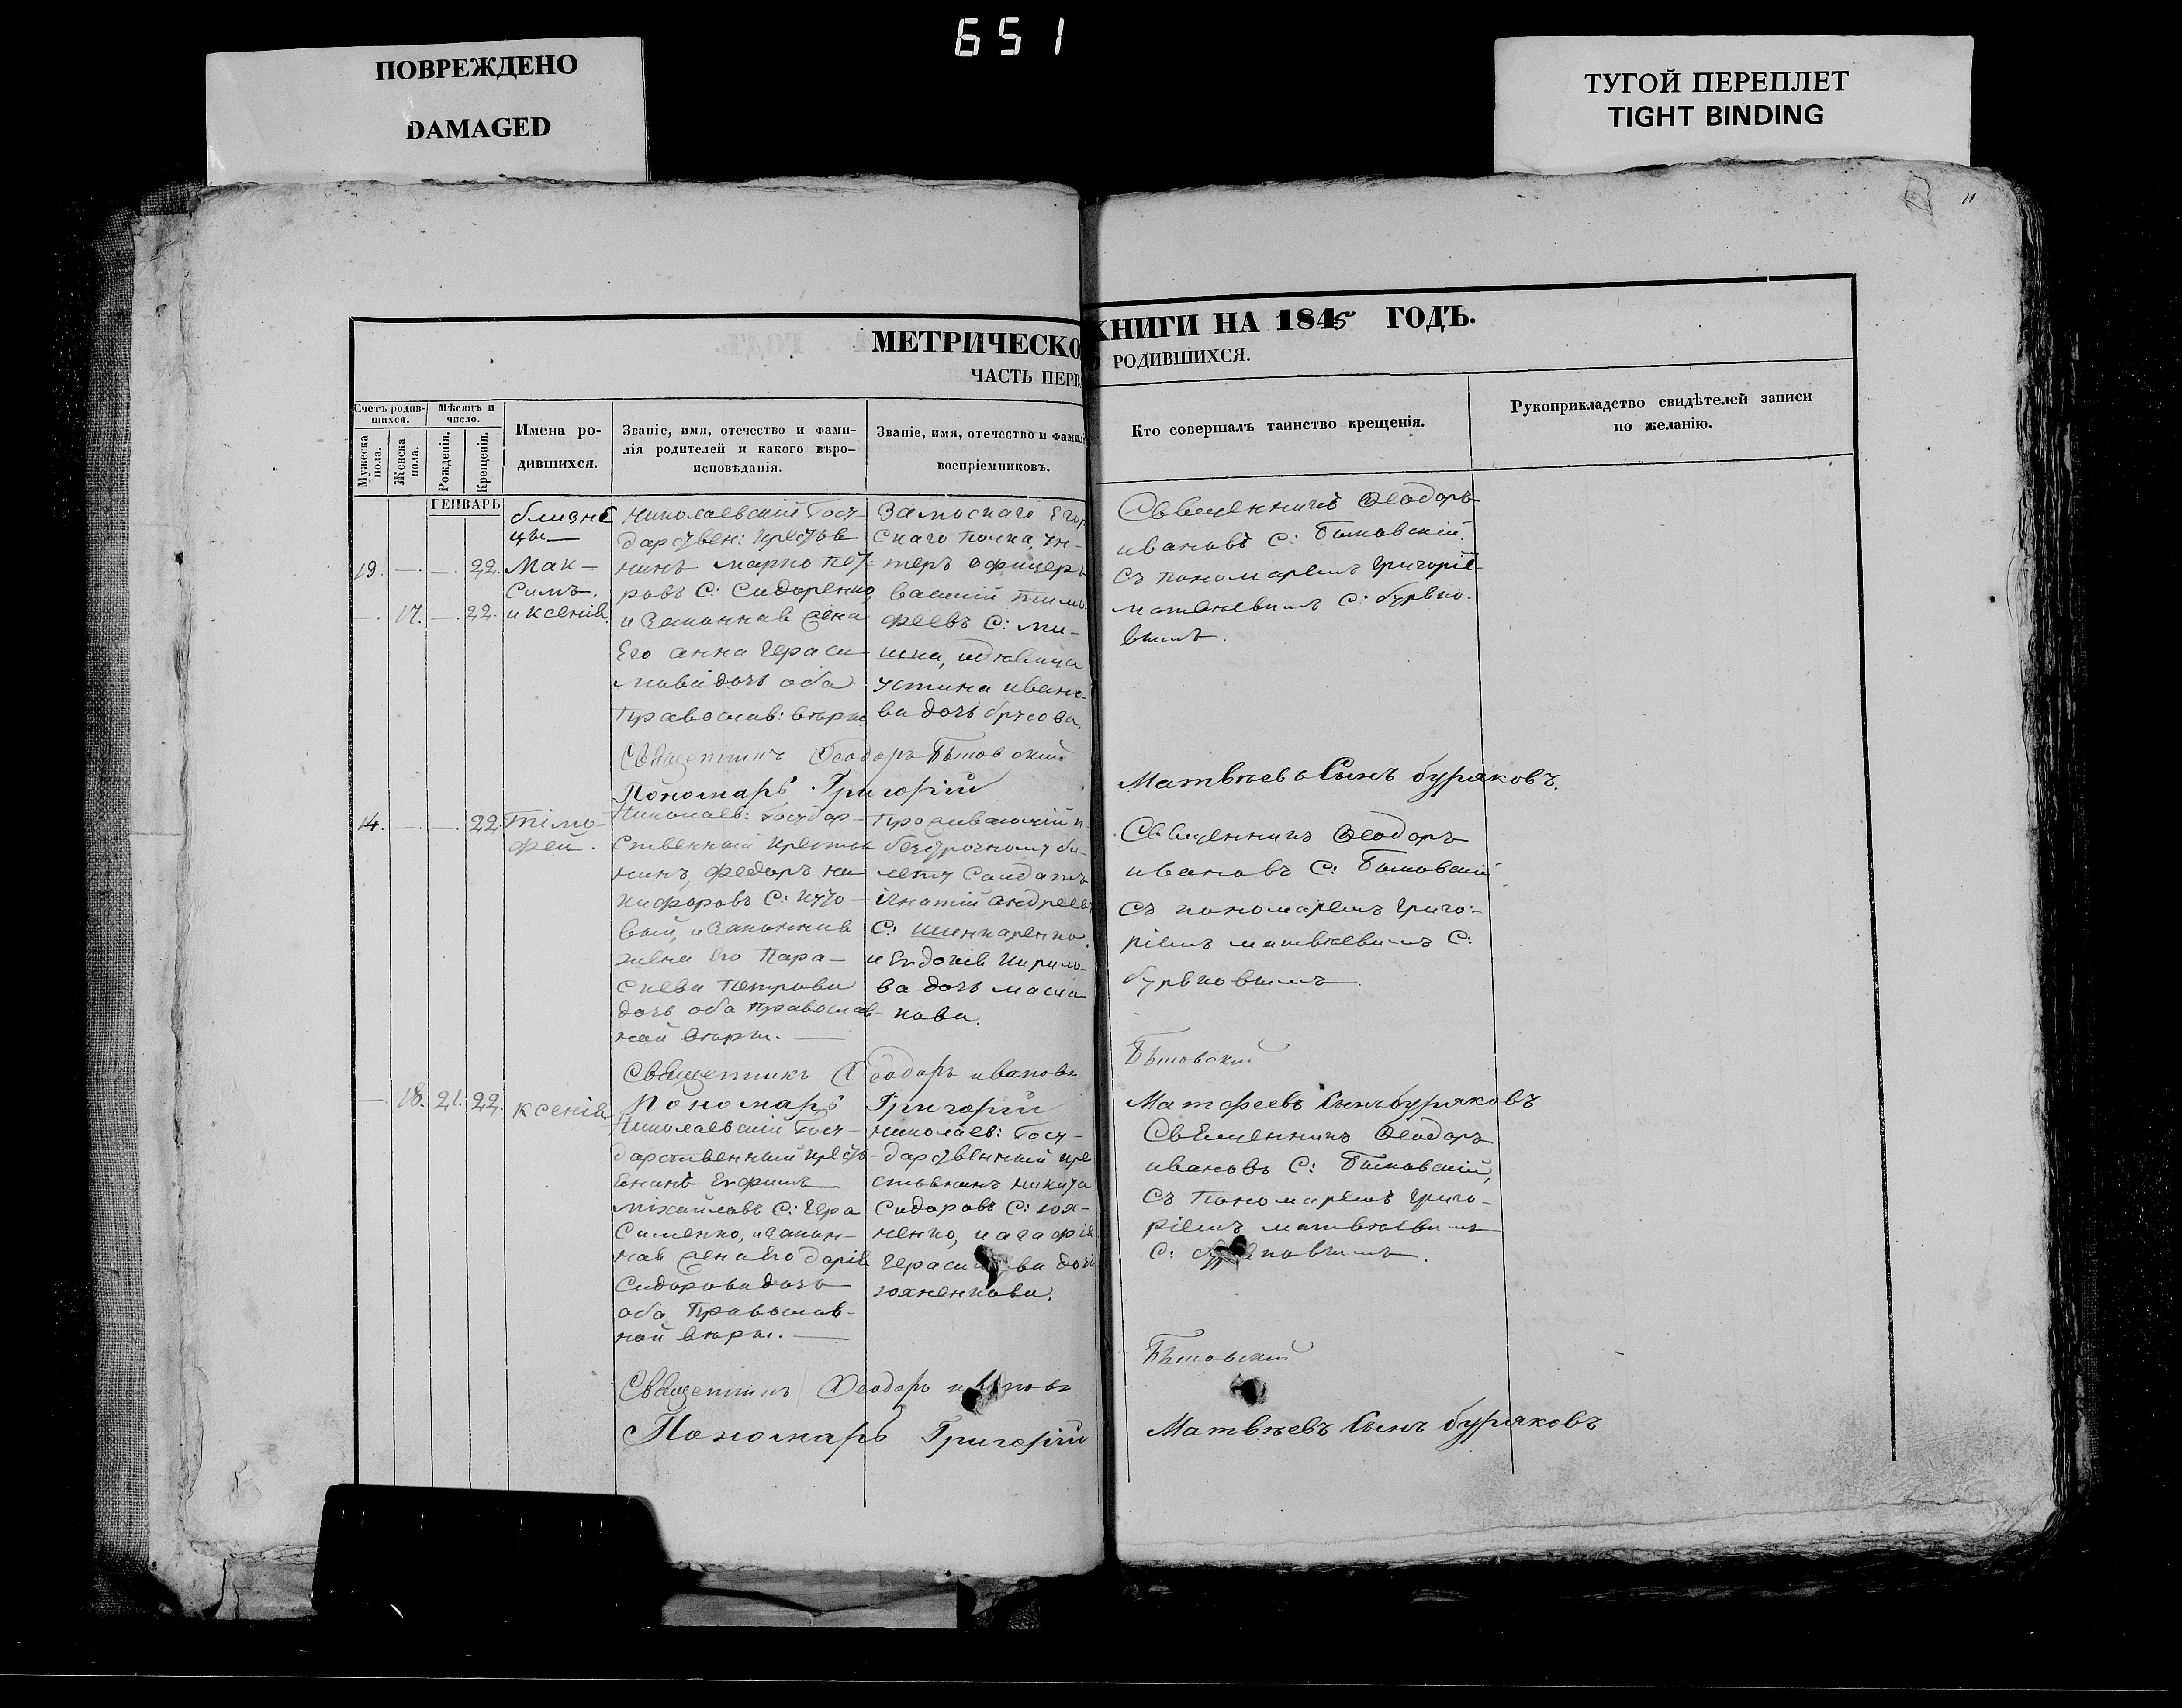 651
ПОВРЕЖДЕНО
DAMAGED
ТУГОЙ ПЕРЕПЛЕТ
TIGHT BINDING
11
МЕТРИЧЕСКО
КНИГИ НА 1845 ГОДЪ.
ЧАСТЬ ПЕРВ
РОДИВШИХСЯ.
Счетъ родив-
шихся.
Мѣсяцъ и
число.
Мужеска
пола.
Женска
пола.
Рожденія.
Крещенія.
Имена ро-
дившихся.
Званіе, имя, отечество и фами-
лія родителей и какого вѣро-
исповѣданія.
Званіе, имя, отечество и фамил
воспріемниковъ.
Кто совершалъ таинство крещенія.
Рукоприкладство свидѣтелей записи
по желанію.
ГЕНВАРЬ
близне
цы
13. — — 22. Мак-
симъ.
— 17. — 22. и ксенія.
Николаевскій Госу-
дарствен: крестья
нинъ марко пет
ровъ С: Сидоренко
и законная жена
Его анна Гераси
мова дочь оба
Православ: вѣры
скаго полка, ун-
теръ офицеръ
тимо
феевъ С: ми-
шка,
устина ивано-
ва дочь
Священникъ Ѳеодоръ
ивановъ С:
съ пономаремъ Григоріе
матвѣевымъ С: буряко-
вымъ.
Священникъ Ѳеодоръ
Пономарь Григорій
Матвѣевъ Сынъ буряковъ.
14. — — 22. Тімо-
фей.
Николаев: Государ-
ственный крестья
нинъ, федоръ ни
кифоровъ С:
и законная
жена Его Пара-
скева Петрова
дочь оба православ-
ной вѣры.
Проживающій п
безсрочному би-
лету Солдатъ
ігнатій андреев:
С: шинкаренко
и Евдокія Кирило-
ва дочь
кова.
Священникъ Ѳеодоръ
ивановъ С:
съ пономаремъ Григо-
ріемъ матвѣевымъ С:
буряковымъ.
Священникъ Ѳеодоръ ивановъ
Пономарь Григорій
Матфеевъ Сынъ буряковъ
— 18. 21. 22. ксенія
Николаевскій Госу-
дарственный кресть-
янинъ Ефимъ
міхайловъ С: Гера
сименко, и закон-
ная жена Его дарія
Сидорова дочь
оба Православ-
ной вѣры.
Николаев: Госу-
дарственный кре
стьянинъ никита
Сидоровъ С: юх-
ненко, и агафія
Гераси ва дочь
юхненкова.
Священникъ Ѳеодоръ
ивановъ С:
съ Пономаремъ Григо-
ріемъ матвѣевымъ
С: буряковымъ.
Священникъ Ѳеодоръ ивановъ
Пономарь Григорій
Матвѣевъ Сынъ буряковъ